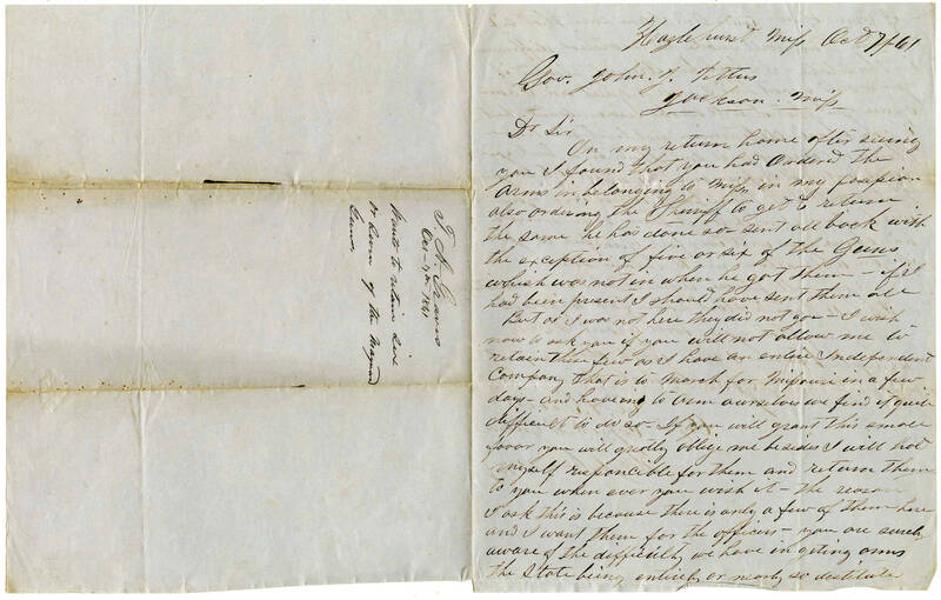 Hazlehurst Miss Oct 7/61
Gov. John. J. Pettus
Jackson. Miss
Dr Sir
On my return home after seeing
you I found that you had ordered the
Arms in belonging to Miss. in my possession
also ordering the Sheriff to get & return
the same he has done so - sent all back with
the exception of five or six of the Guns
which was not in when he got them - if I
had been present I should have sent them all
But as I was not here they did not go - I wish
now to ask you if you will not allow me to
retain these few as I have an entire Independent
Company that is to March for Missouri in a few
days - and haveing to arm ourselves we find it quite
difficult to do so - If you will grant this small
favor you will greatly oblige me besides I will hold
myself responcible for them and return them
to you when ever you wish it - the reason
I ask this is because there is only a few of them here
and I want them for the officers - you are surely
aware of the difficulty we have in geting arms
the State being entirely or nearly so destitute
Oct - 7th 1861
Wants to retain five
or seven of the Maynard
Guns